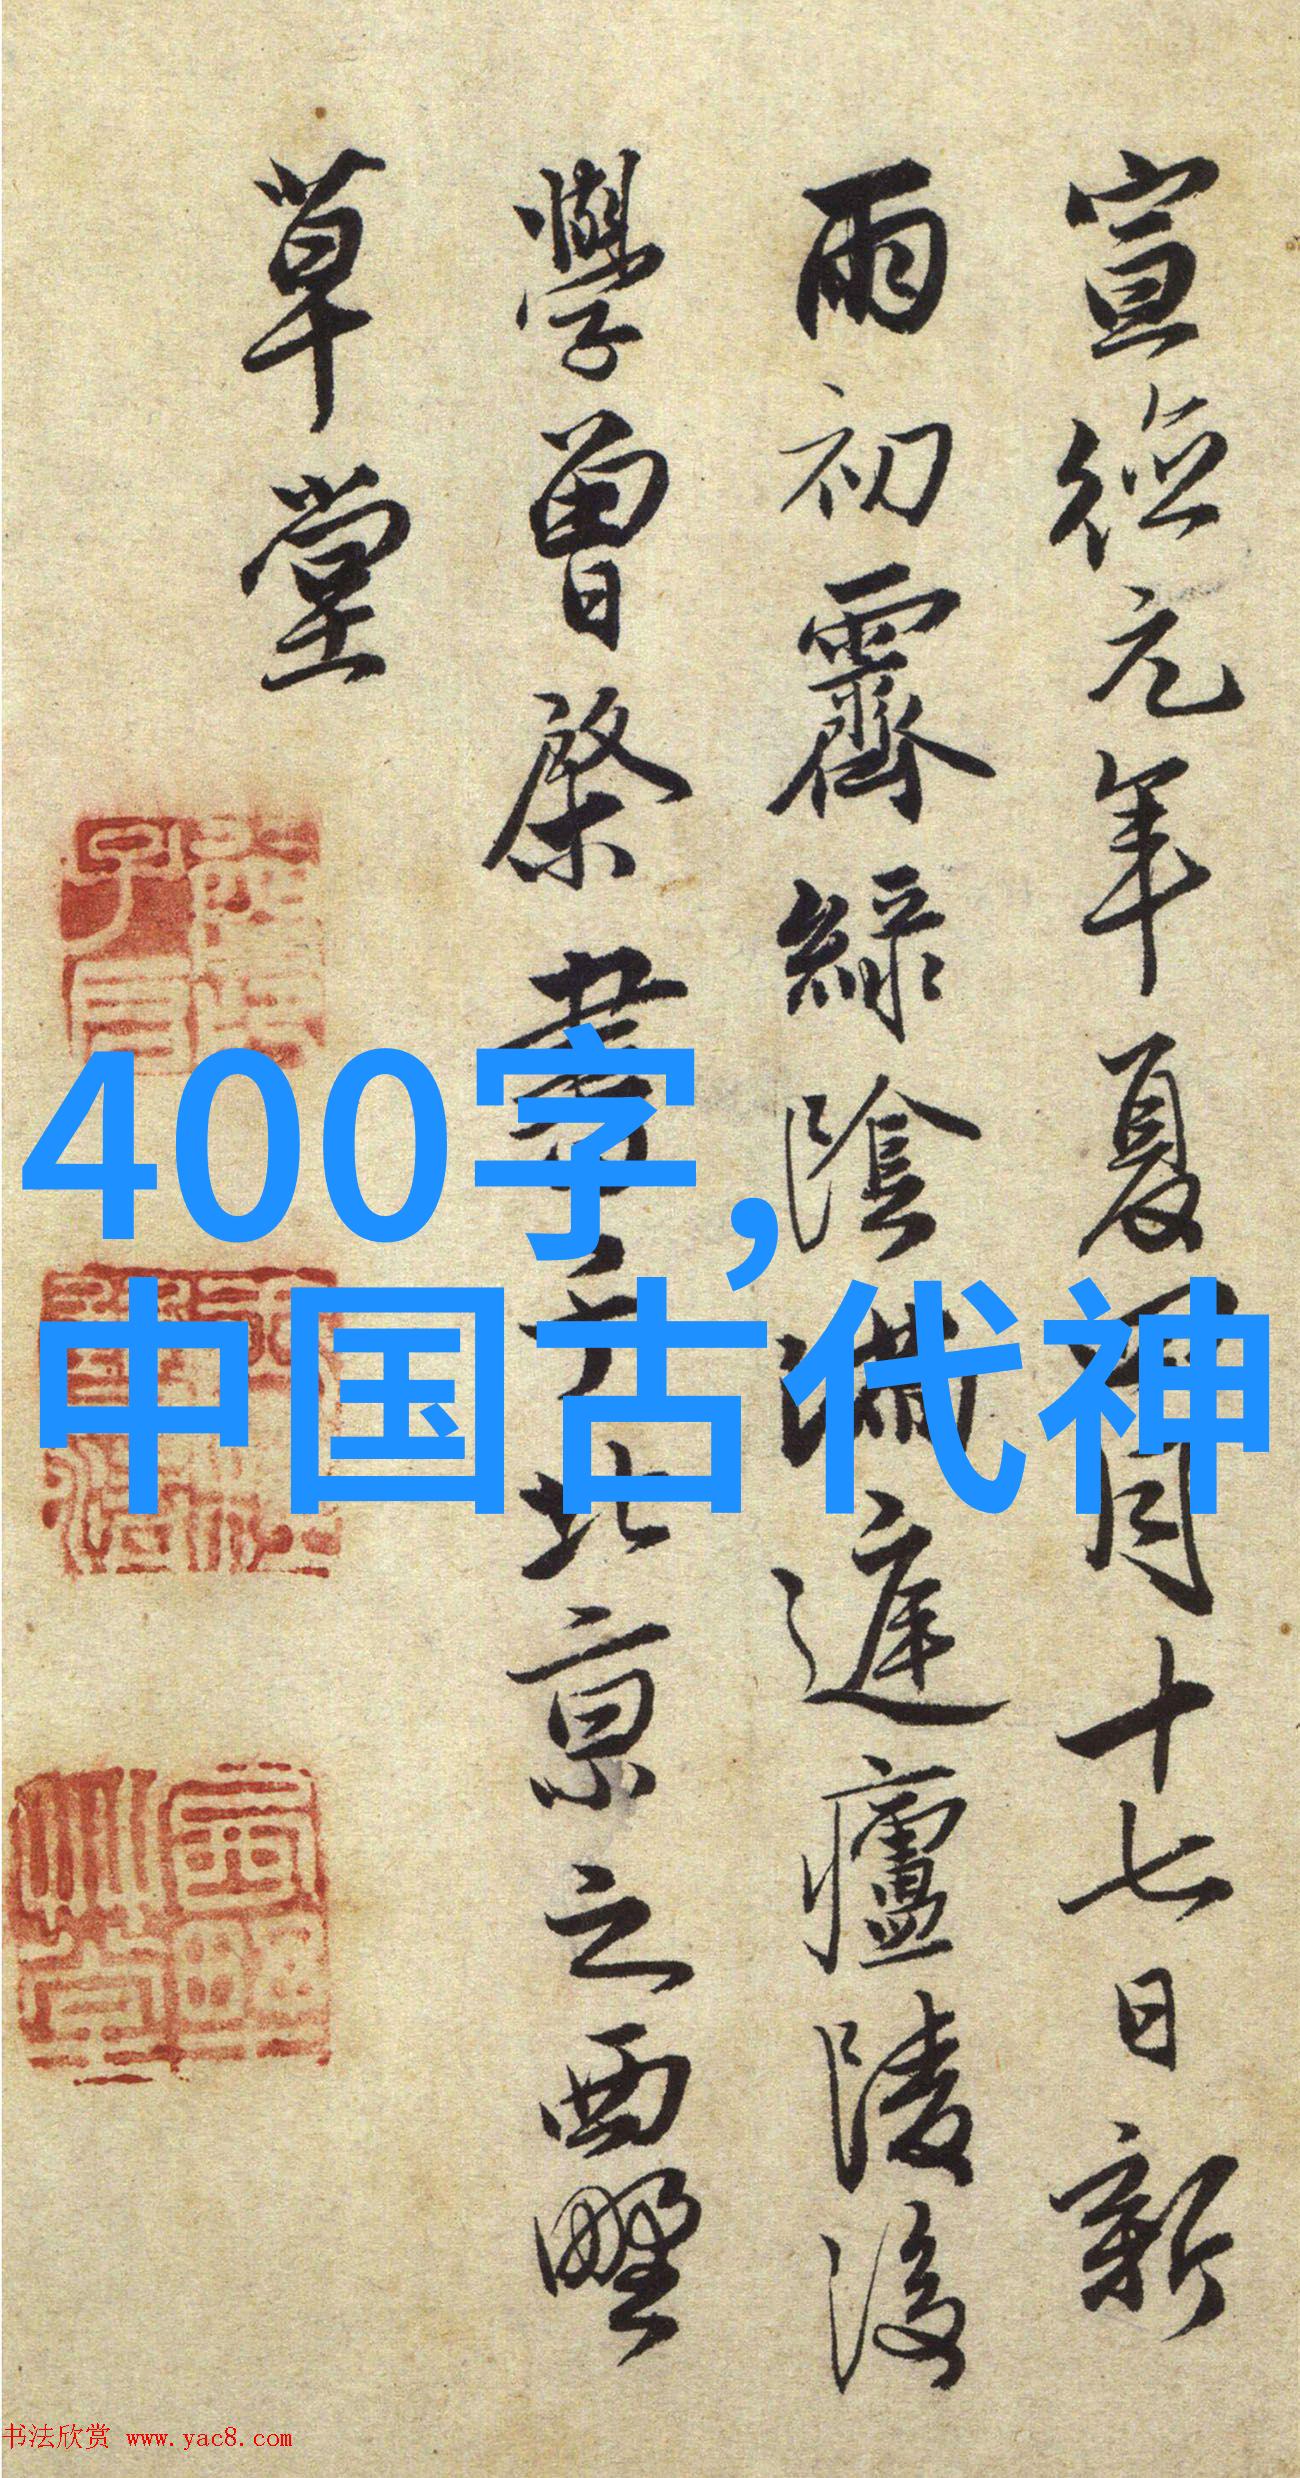 宣德元年夏四月十七日新
雨初霽綠陰滿庭廬陵後
學曾棨書于北京之西墅
草堂
400字，
中国古代神
书法欣赏 www.yac8.com